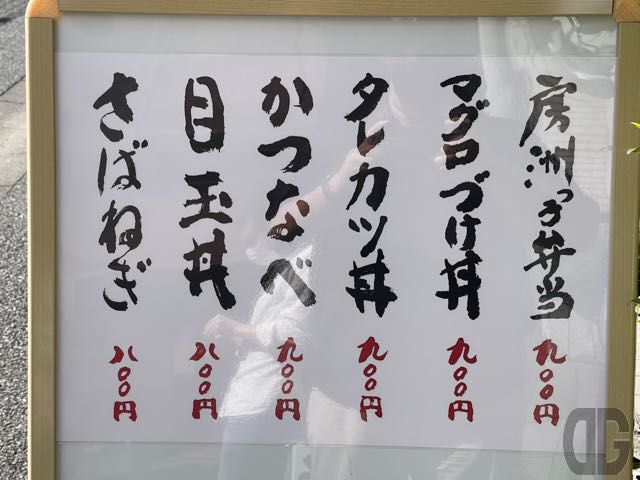 房洲っ子弁当 九〇〇円
マグロづけ丼 九〇〇円
タレカツ丼 九〇〇円
かつなべ 九〇〇円
目玉丼 八〇〇円
さばねぎ 八〇〇円
DG